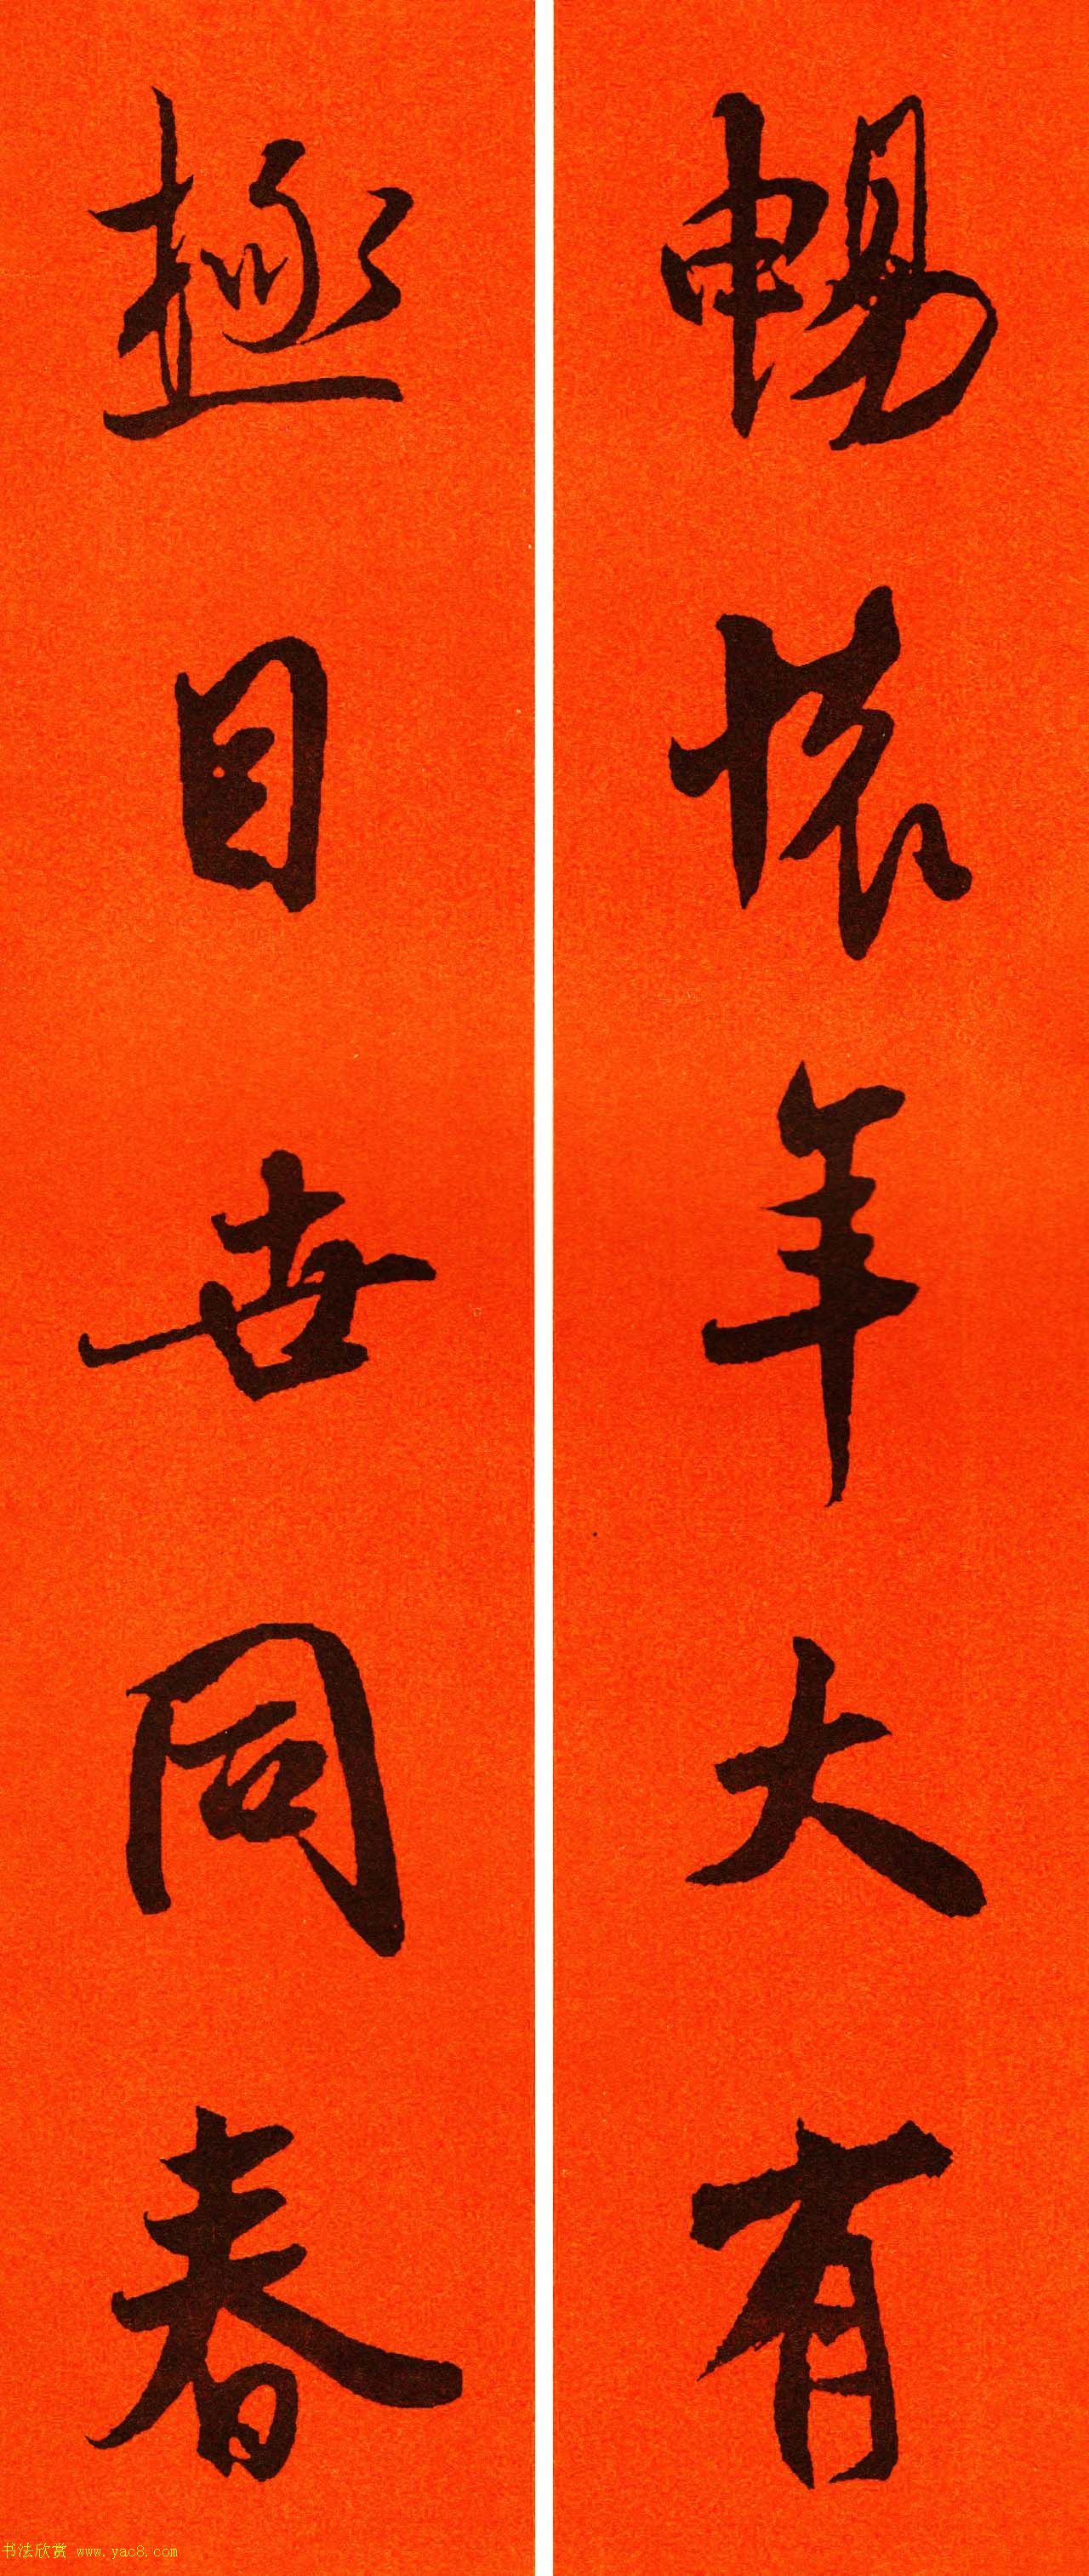 暢懷年大有
極目世同春
书法欣赏 www.yac8.com